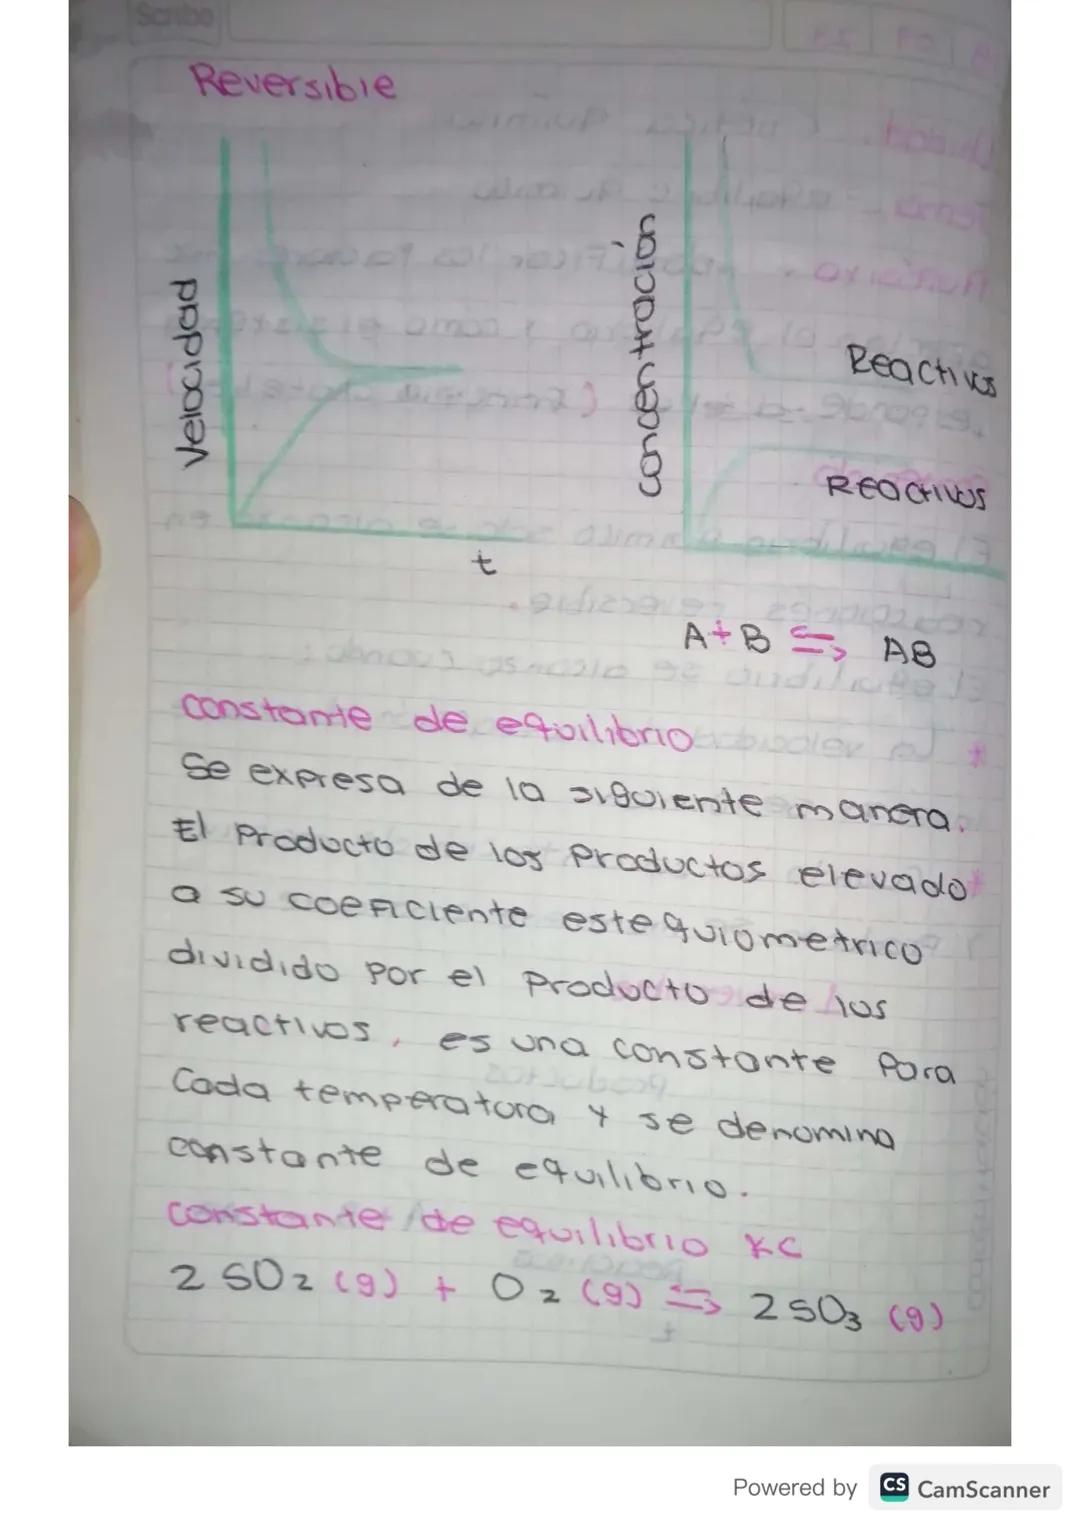 Scribe
Reversible
Velocidad
t
concentración
Reactivos
Reactivos
A + B ⇆ AB
constante de equilibrio
Se expresa de la siguiente manera.
El Producto de los Productos elevado
a su coeficiente estequiometrico
dividido por el Producto de los
reactivos, es una constante Para
Cada temperatura y se denomina
constante de equilibrio.
constante de equilibrio KC
2 SO2 (g) + O2 (g) ⇆ 2SO3 (g)
Powered by CS CamScanner